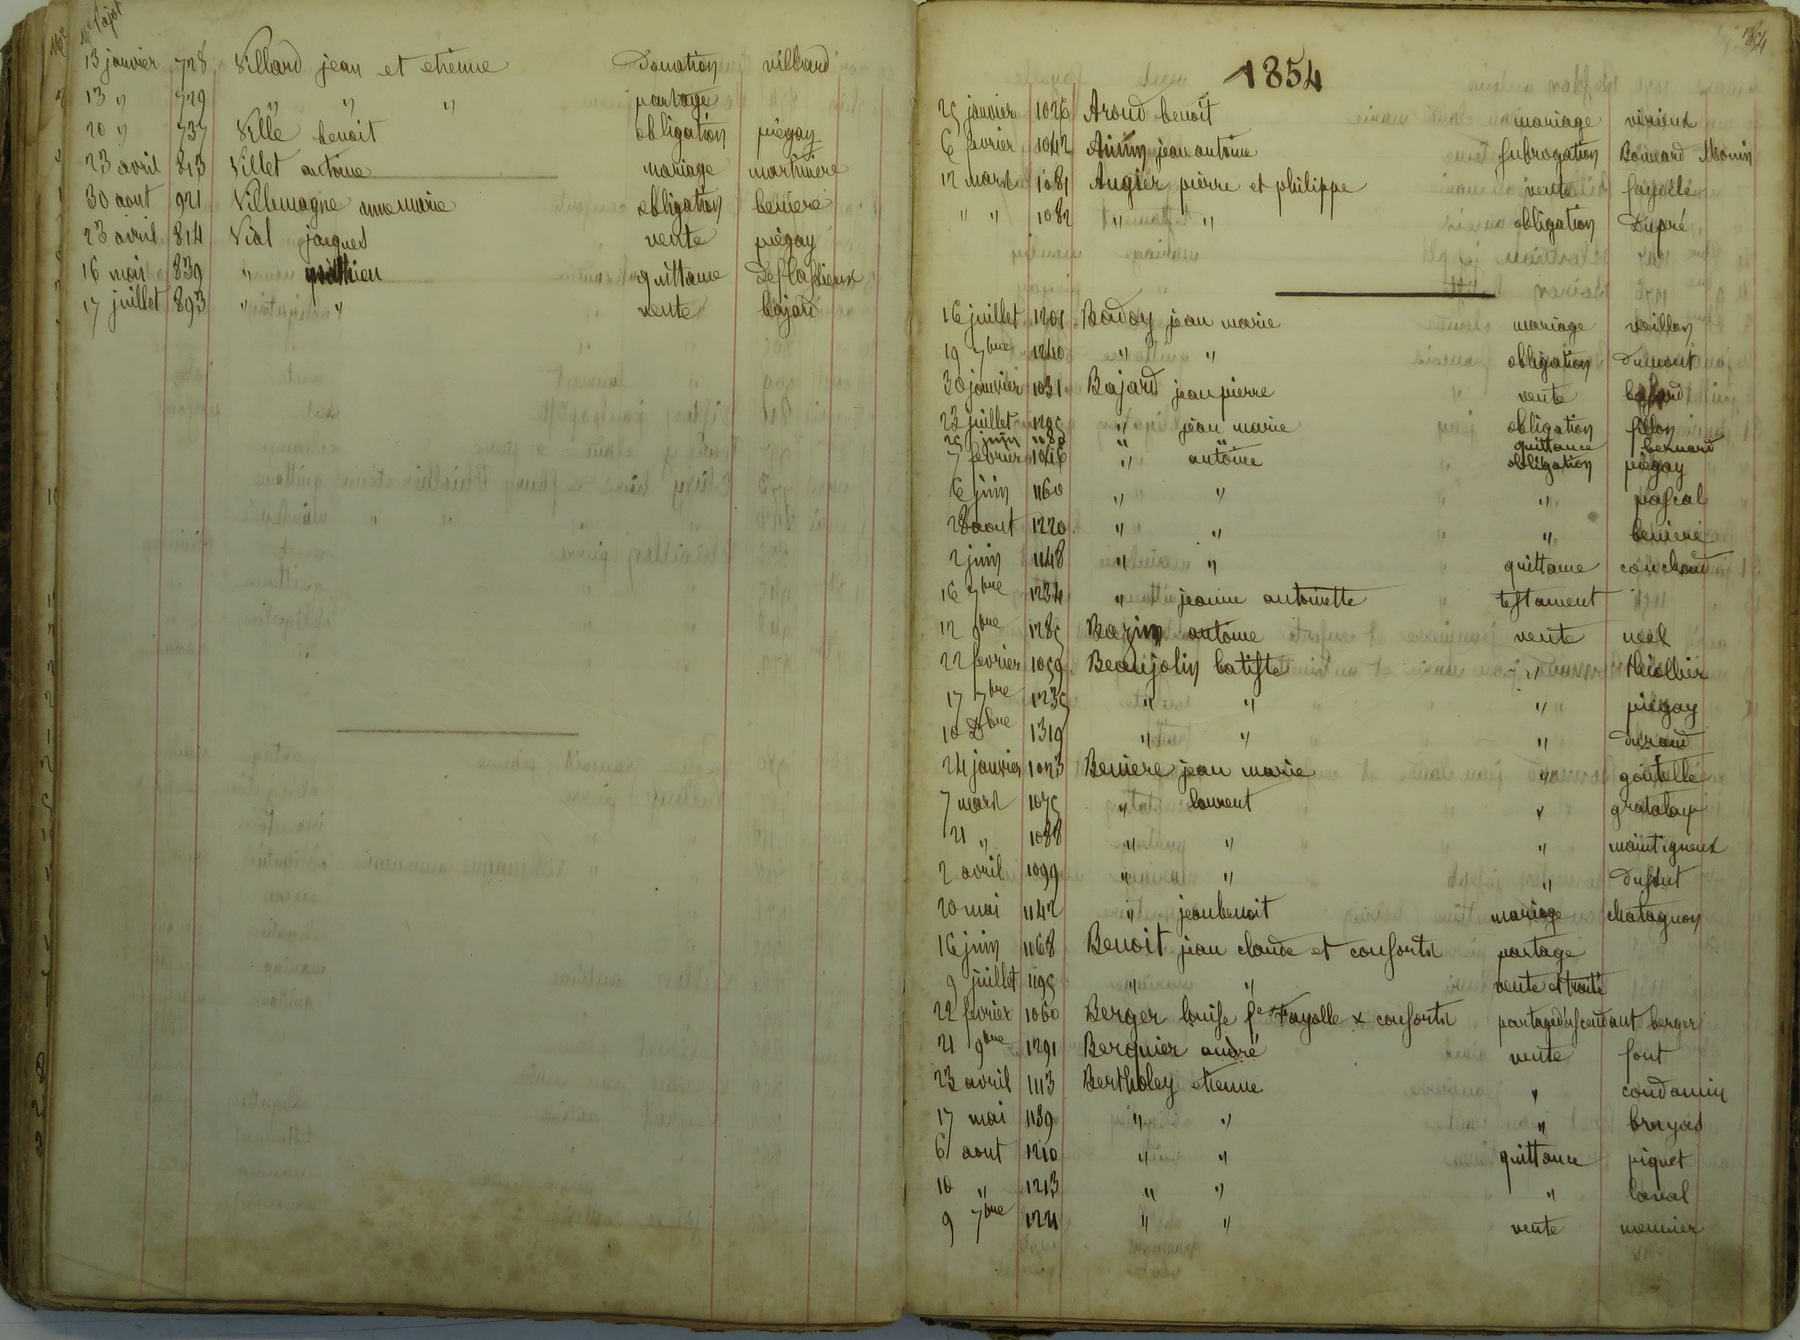 Me Pajot
13 janvier 728 Villard jean et etienne Donation villard
13 " 729 " " " partage
20 " 737 Ville benoit obligation piégay
23 avril 813 Villet antoine mariage martiniere
30 aout 921 Villemagne annemarie obligation beniere
23 avril 814 Vial jacques vente piégay
16 mai 839 " mathieu quittance Desflassieux
17 juillet 893 " " vente bajard
1854
25 janvier 1026 Aroud benoit mariage virieux
6 fevrier 1042 jean antoine subrogation Bonnard Monin
12 mars 1081 Augier pierre et philippe vente fayolle
" " 1082 " " obligation Dupré
16 juillet 1201 Baday jean marie mariage veillon
19 7bre 1240 " " obligation dumont
30 janvier 1031 Bajard jean pierre vente bajard
22 juillet 1205 " jean marie obligation fillon
25 juin " " quittance bernard
7 fevrier 1046 " antoine obligation piégay
6 juin 1160 " " " pascal
28 aout 1220 " " " beniere
2 juin 1148 " " quittance couchoud
16 7bre 1234 " jeanne antoinette testament
12 9bre 1285 Bazin antoine vente noel
22 fevrier 1059 Beaujolin batiste " thiollier
17 7bre 1235 " " " piégay
10 Dbre 1319 " " " durand
24 janvier 1023 Beniere jean marie " goutelle
7 mars 1075 " laurent " grataloup
21 " 1088 " " " maintigneux
2 avril 1099 " " " dufout
20 mai 1142 " jean benoit mariage chatagnon
16 juin 1168 Benoit jean claude et consorts partage
9 juillet 1195 " " vente et traité
22 fevrier 1060 Berger louise fe Fayolle & consorts partage d'ascendant berger
21 9bre 1291 Berquier andré vente font
23 avril 1113 Bertholey etienne " condamin
17 mai 1139 " " " bruyas
6 aout 1210 " " quittance piquet
10 " 1213 " " " laval
9 7bre 1221 " " vente meunier